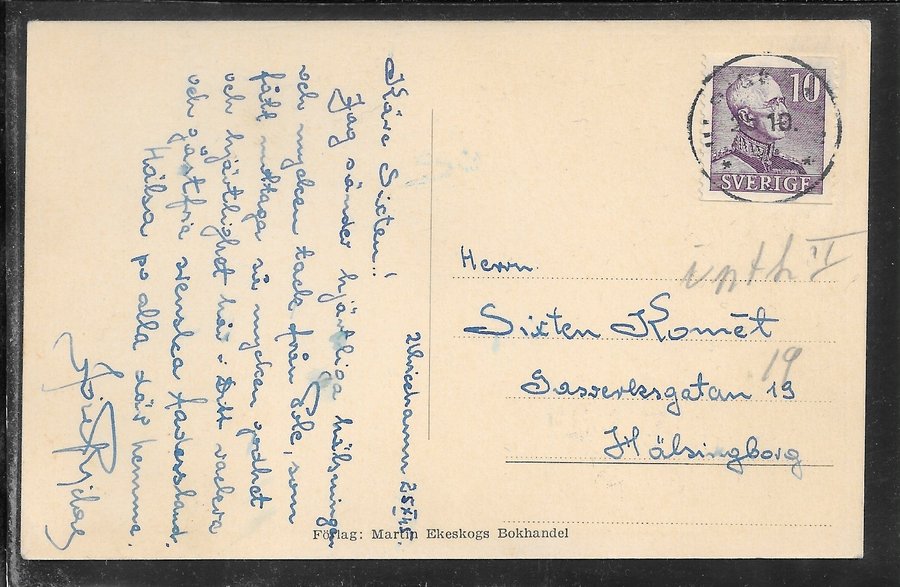 Käre Sixten!!
Jag sänder hjärtliga hälsningar
och mycken tack från Folk, som
fått mottaga så mycken godhet
och hjärtlighet här i Ditt vackra
och gästfria svenska fadersland.
Hälsa på alla där hemma.
Ulricehamn 25 X 45.
10
SVERIGE
10.
Herrn
Sixten Komēt
Gasverksgatan 19
19
Hälsingborg
Förlag: Martin Ekeskogs Bokhandel